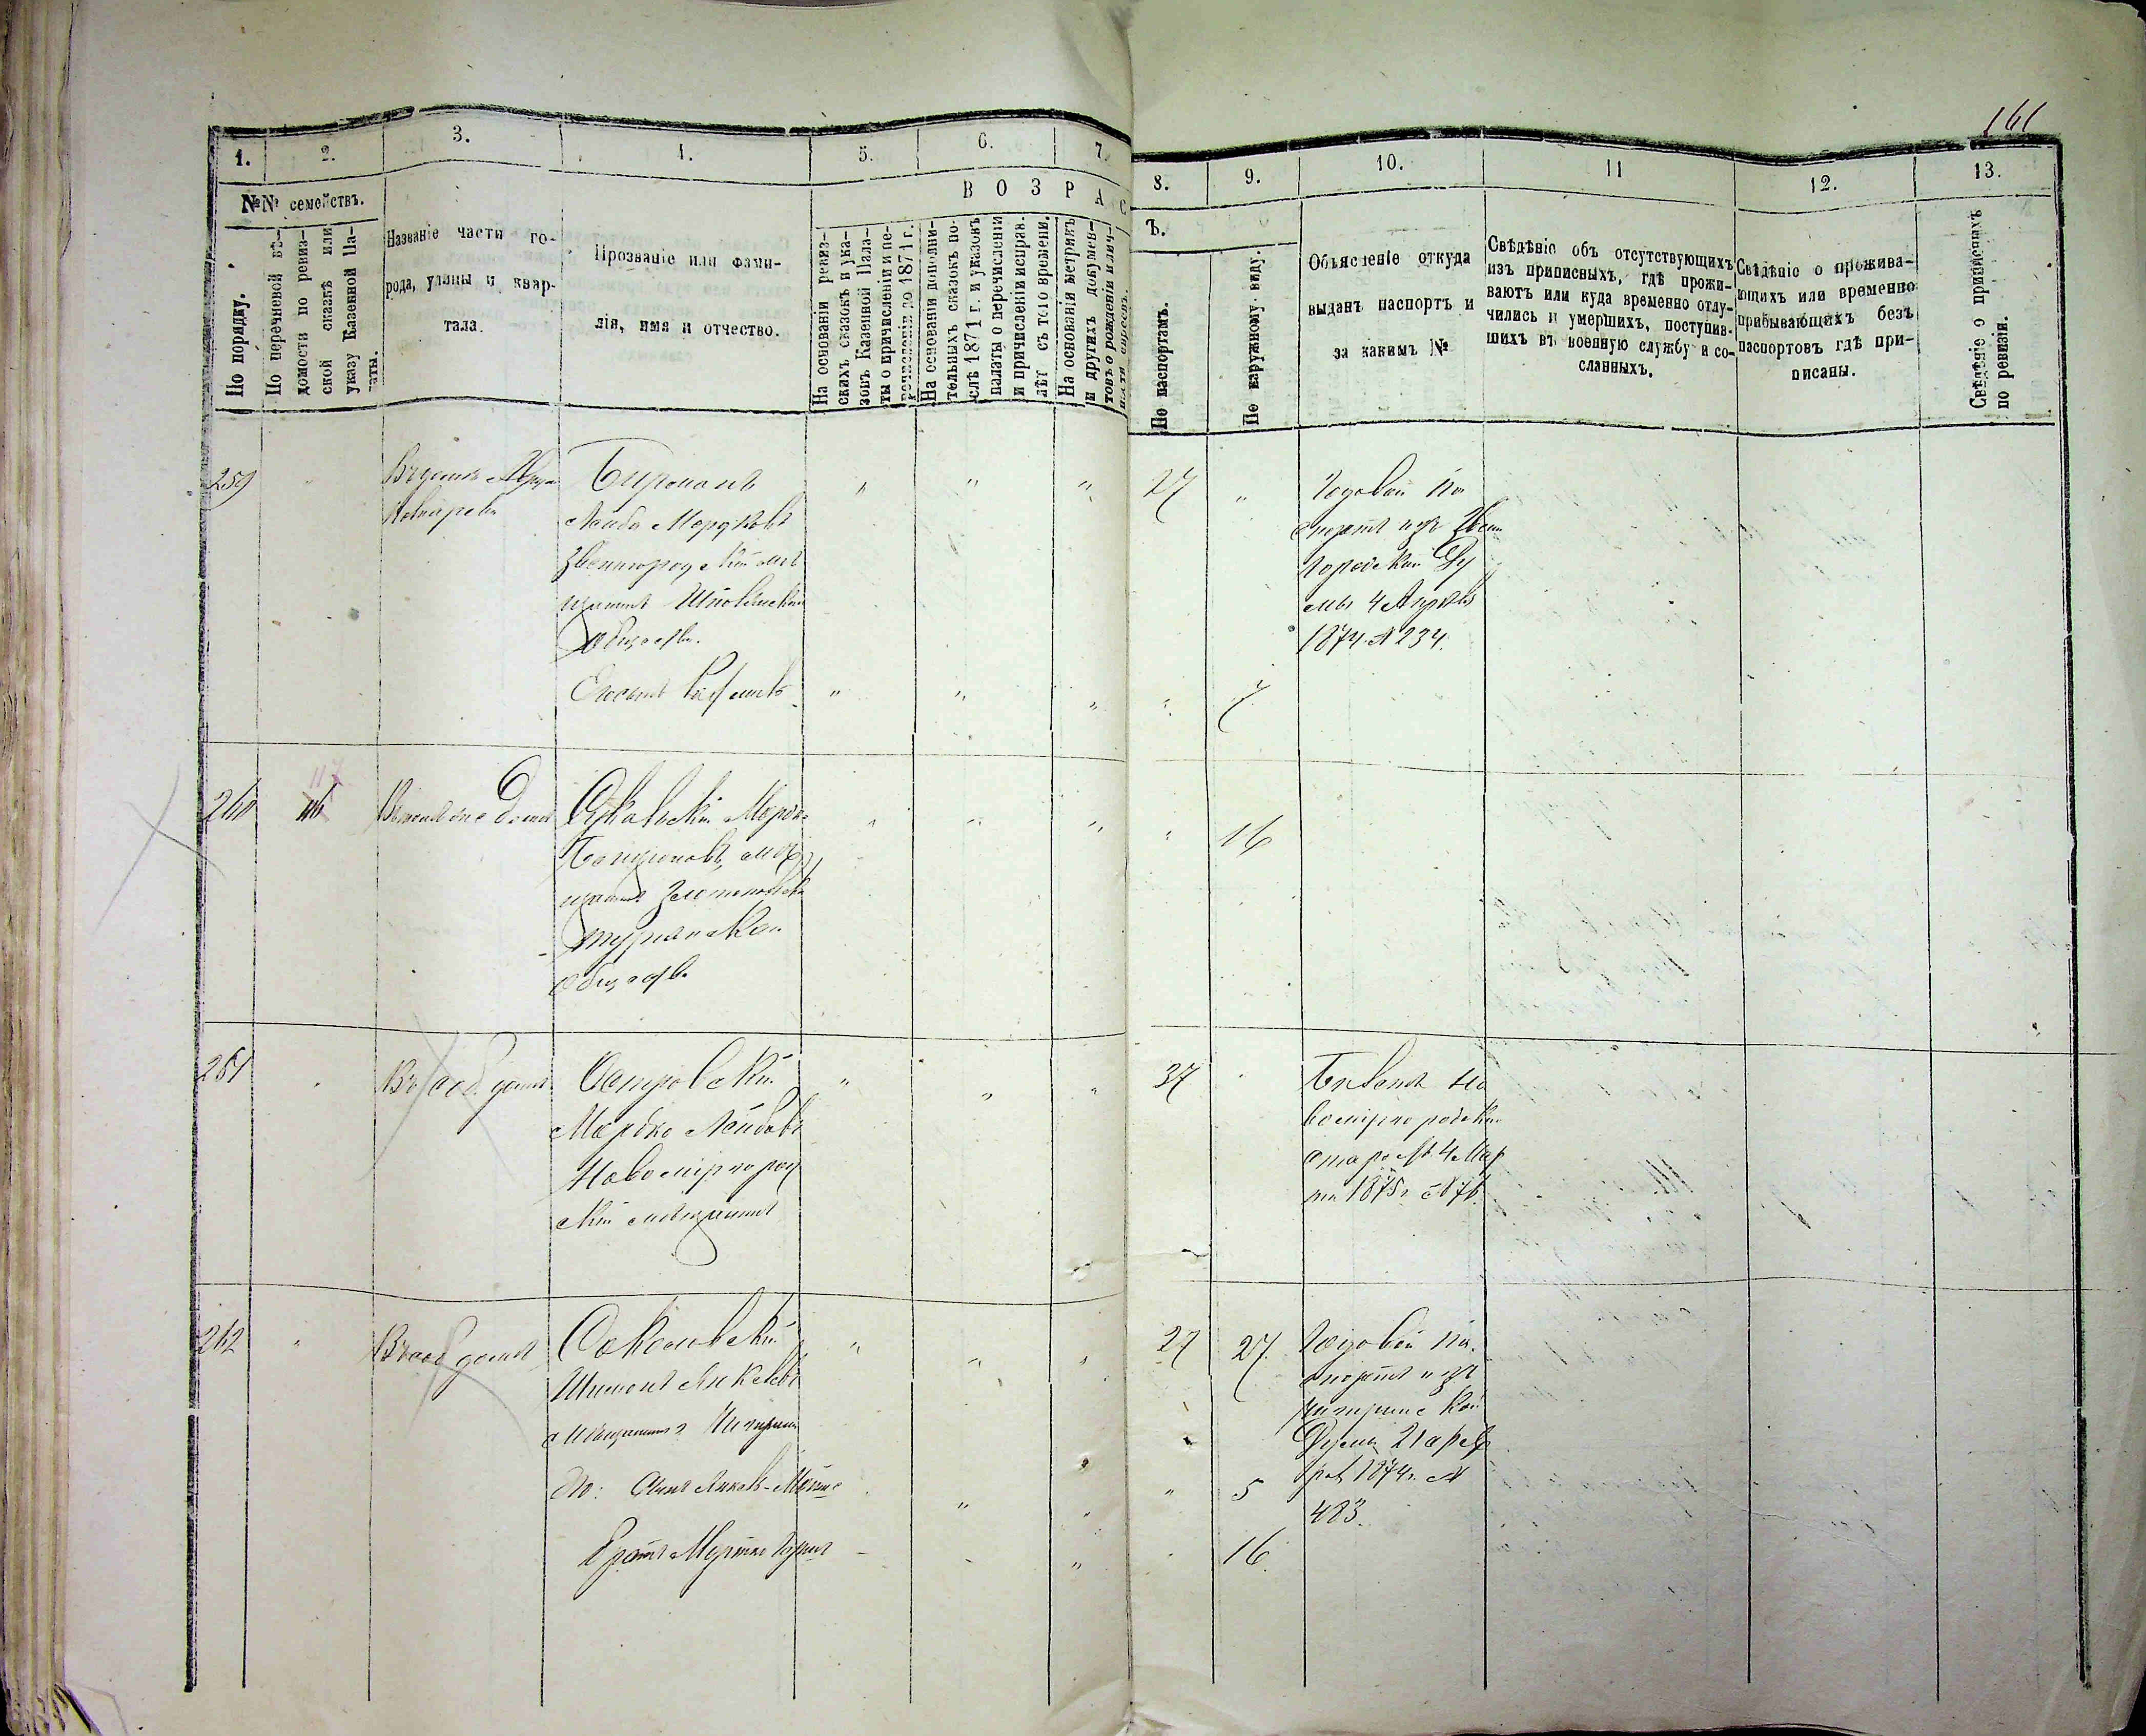 161
1. 2. 3. 4. 5. 6. 7. 8. 9. 10. 11 12. 13.
№№ семействъ.
По порядку.
По перечневой вѣ-
домости по ревиз-
ской сказкѣ или
указу Казенной Па-
латы.
Названіе части го-
рода, улицы и квар-
тала.
Прозваніе или фами-
лія, имя и отчество.
ВОЗРАСТЪ.
На основаніи ревиз-
скихъ сказокъ и ука-
зовъ Казенной Пала-
ты о причисленіи и пе-
речисленіи до 1871 г.
На основаніи дополни-
тельныхъ сказокъ по-
слѣ 1871 г. и указовъ
палаты о перечисленіи
и причисленіи исправ.
лѣт съ того времени.
На основаніи метрикъ
и другихъ докумен-
товъ о рожденіи или
По паспортамъ.
По наружному виду.
Объясненіе откуда
выданъ паспортъ и
за какимъ №
Свѣдѣніе объ отсутствующихъ
изъ приписныхъ, гдѣ прожи-
ваютъ или куда временно отлу-
чились и умершихъ, поступив-
шихъ въ военную службу и со-
сланныхъ.
Свѣдѣніе о прожива-
ющихъ или временно
прибывающихъ безъ
паспортовъ гдѣ при-
писаны.
Свѣдѣніе о приписныхъ
по ревизіи.
259
Лейба Мордковъ
Звенигородскій мѣ
щанинъ Шполянскаго
общества.
27
Годовой па
спортъ изъ Звени
городской Ду
мы 4 Апрѣля
1874 № 234.
7
260 117
Въ томъ же домѣ
Мордко
мѣ
щанинъ Златопольско
Турянскаго
общества
16
261
Въ соб. домѣ
Островскій
Мордко Лейбовъ
Новомиргород
скій мѣщанинъ
37
Билетъ Но
вомиргородской
старосты 4 Мар
та 1875 г. № 76.
262
Въ соб домѣ
Соколовскій
Шимонъ Янкелевъ
мѣщанинъ Чигирин
27 27
Годовой па
спортъ изъ
Чигиринской
Думы 21 Фев
рал 1874 г. №
483.
Его: Сынъ Янкель-Мошко
5
Братъ
16